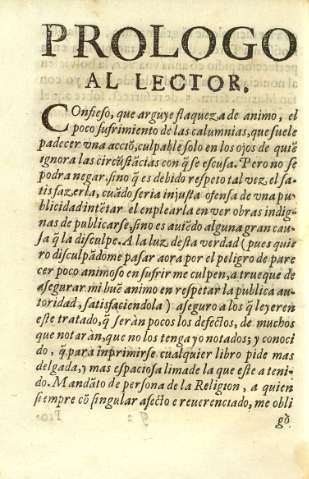 PROLOGO
AL LECTOR.
COnfieso, que arguye flaqueza de animo, el
poco sufrimiento de las calumnias, que suele
padecer vna acciõ, culpable solo en los ojos de quiẽ
ignora las circũstãcias con q̃ se escusa. Pero no se
podra negar, sino q̃ es debido respeto tal vez, el sa-
tisfazerla, cuãdo seria injusta ofensa de vna pu-
blicidad intẽtar el enplearla en ver obras indig-
nas de publicarse, sino es auiẽdo alguna gran cau-
sa q̃ la disculpe. A la luz desta verdad (pues quie
ro disculpãdome pasar aora por el peligro de pare
cer poco animoso en sufrir me culpen, a trueque de
asegurar mi buẽ animo en respetar la publica au-
toridad, satisfaciendola) aseguro a los q̃ leyeren
este tratado, q̃ seràn pocos los defectos, de muchos
que notaràn, que no los tenga yo notados; y conoci
do, q̃ para inprimirse cualquier libro pide mas
delgada, y mas espaciosa lima de la que este a teni-
do. Mandãto de persona de la Religion, a quien
siempre cõ singular afecto e reuerenciado, me obli
gò